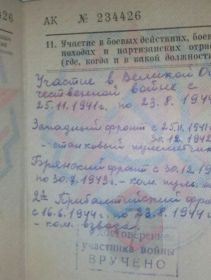 26
АК № 234426
11. Участие в боевых действиях, боев
походах и партизанских отря
(где, когда и в какой должност
Участие в Великой От
чественной войне с
25.11.1941г. по 23.8.194
Западный фронт с 25.11.1941
30.12.1942
- станковый пулеметчик
Брянский фронт с 30.12.19
по 30.7.1943г. - ком. пульм.
2й Прибалтийский фро
с 16.6.1944г. по 23.8.1944г.
- ком. взвода.
Удостоверение
участника войны
ВРУЧЕНО